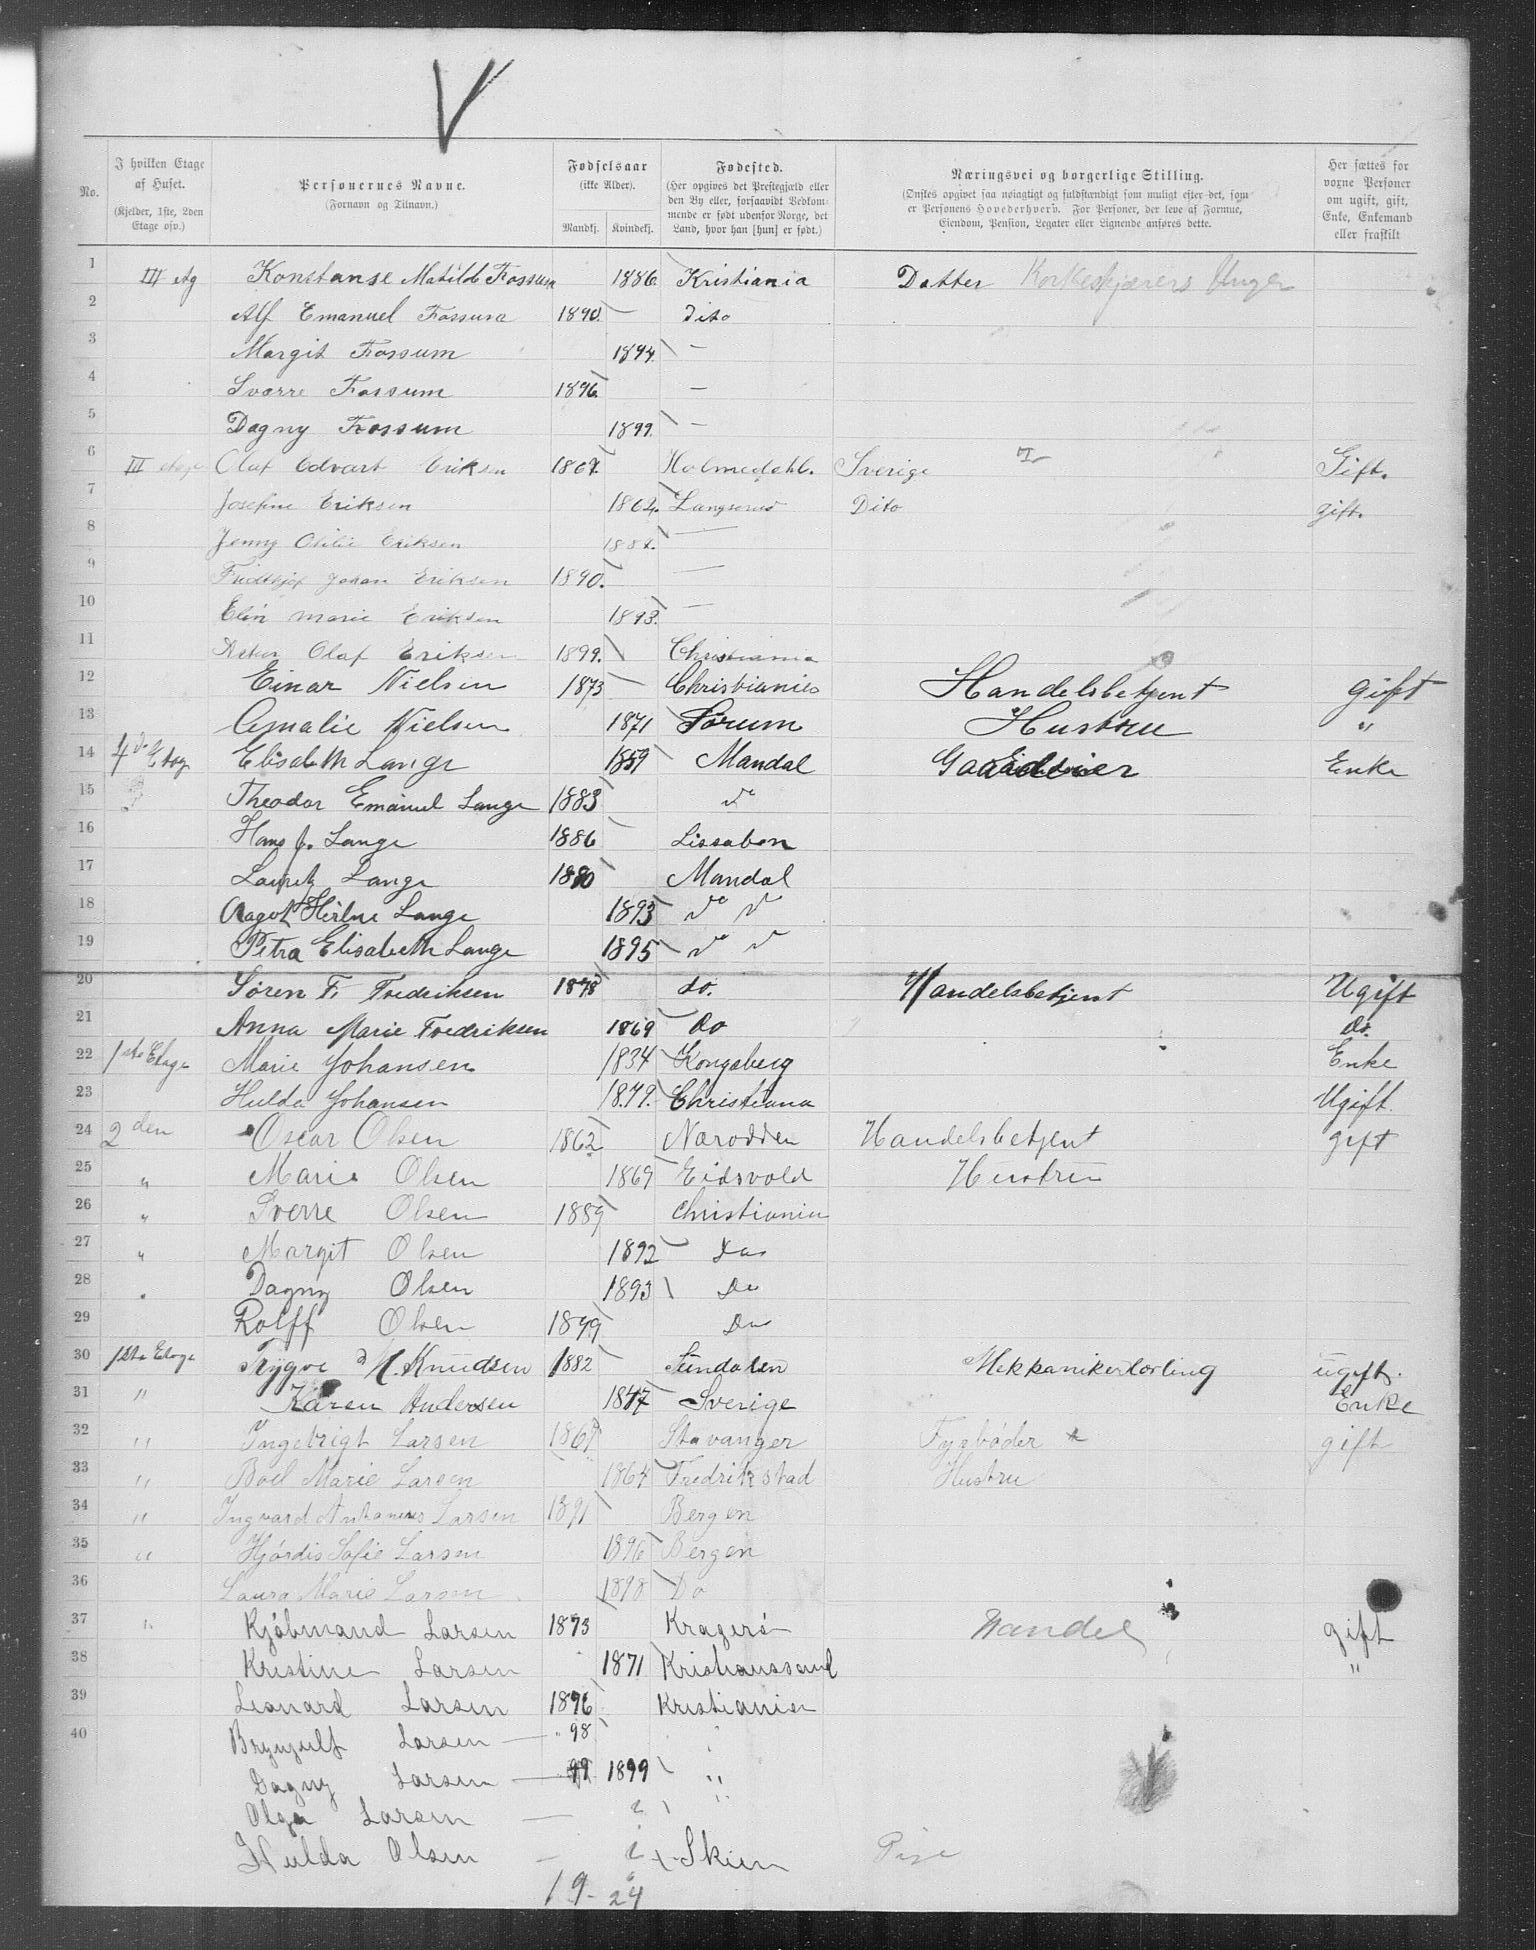 V
No.
I hvilken Etage af Huset.
(Kjelder, 1ste, 2den Etage osv.)
Personernes Navne.
(Fornavn og Tilnavn.)
Fødselsaar
(ikke Alder).
Mandkj. Kvindekj.
Fødested.
(Her opgives det Prestegjæld eller den By eller, forsaavidt Vedkommende er født udenfor Norge, det Land, hvor han [hun] er født.)
Næringsvei og borgerlige Stilling.
(Ønskes opgivet saa nøiagtigt og fuldstændigt som muligt efter det, som er Personens Hovederhverv. For Personer, der leve af Formue, Eiendom, Pension, Legater eller Lignende anføres dette.
Her sættes for voxne Personer om ugift, gift, Enke, Enkemand eller fraskilt
1 III Etg Konstanse Matilde Fossum 1886 Kristiania Datter Korkeskjærers
2 Alf Emanuel Fossum 1890 — dito
3 Margit Fossum 1894 —
4 Sværre Fossum 1896 —
5 Dagny Fossum 1899 —
6 III etage Olaf Edvart Eriksen 1867 Holmedahl. Sverige Gift.
7 Josefine Eriksen 1862. Langserud Dito gift.
8 Jenny Otilie Eriksen —
9 Fridtjof Johan Eriksen 1890. —
10 Elin Marie Eriksen 1893. —
11 Olaf Eriksen 1899. Christiania
12 Einar Nielsen 1873 Christiania Handelsbetjent gift
13 Amalie Nielsen 1871 Sørum Hustru "
14 4de Etag Elisabeth Lange 1859 Mandal Enke
15 Theodor Emanuel Lange 1883 do
16 Hans J. Lange 1886 Lissabon
17 Lauritz Lange 1880 Mandal
18 Aagot Lange 1893 do do
19 Petra Elisabeth Lange 1895 do do
20 Søren F. Fredriksen 1878 do. Handelsbetjent Ugift
21 Anna Marie Fredriksen 1869 do do.
22 1ste Etage Marie Johansen 1834 Kongsberg Enke
23 Hulda Johansen 1879. Christiana Ugift.
24 2den Oscar Olsen 1862 Nærodden Handelsbetjent gift
25 " Marie Olsen 1869 Eidsvold Hustru
26 " Sverre Olsen 1889 Christiania
27 " Margit Olsen 1892 Do
28 " Dagny Olsen 1893 Do
29 Rolff Olsen 1899 Do
30 1ste Etage Trygve M. Knudsen 1882 Sundalen Mekkanikerlærling ugift.
31 " Karen Andersen 1847 Sverige Enke
32 " Ingebrigt Larsen 1867 Stavanger Fyrbøder gift
33 " Boel Marie Larsen 1864 Fredrikstad Hustru
34 " Ingvard Larsen 1891 Bergen
35 " Hjørdis Sofie Larsen 1896 Bergen
36 Laura Marie Larsen 1898 Do
37 " Kjøbmand Larsen 1873 Kragerø Handel gift
38 Kristine Larsen 1871 Kristianssand "
39 Leonard Larsen 1896 Kristiania
40 Brynjulf Larsen — 98
Dagny Larsen — 1899 "
Olga Larsen — "
Hulda Olsen — Skien Pige
19 - 24